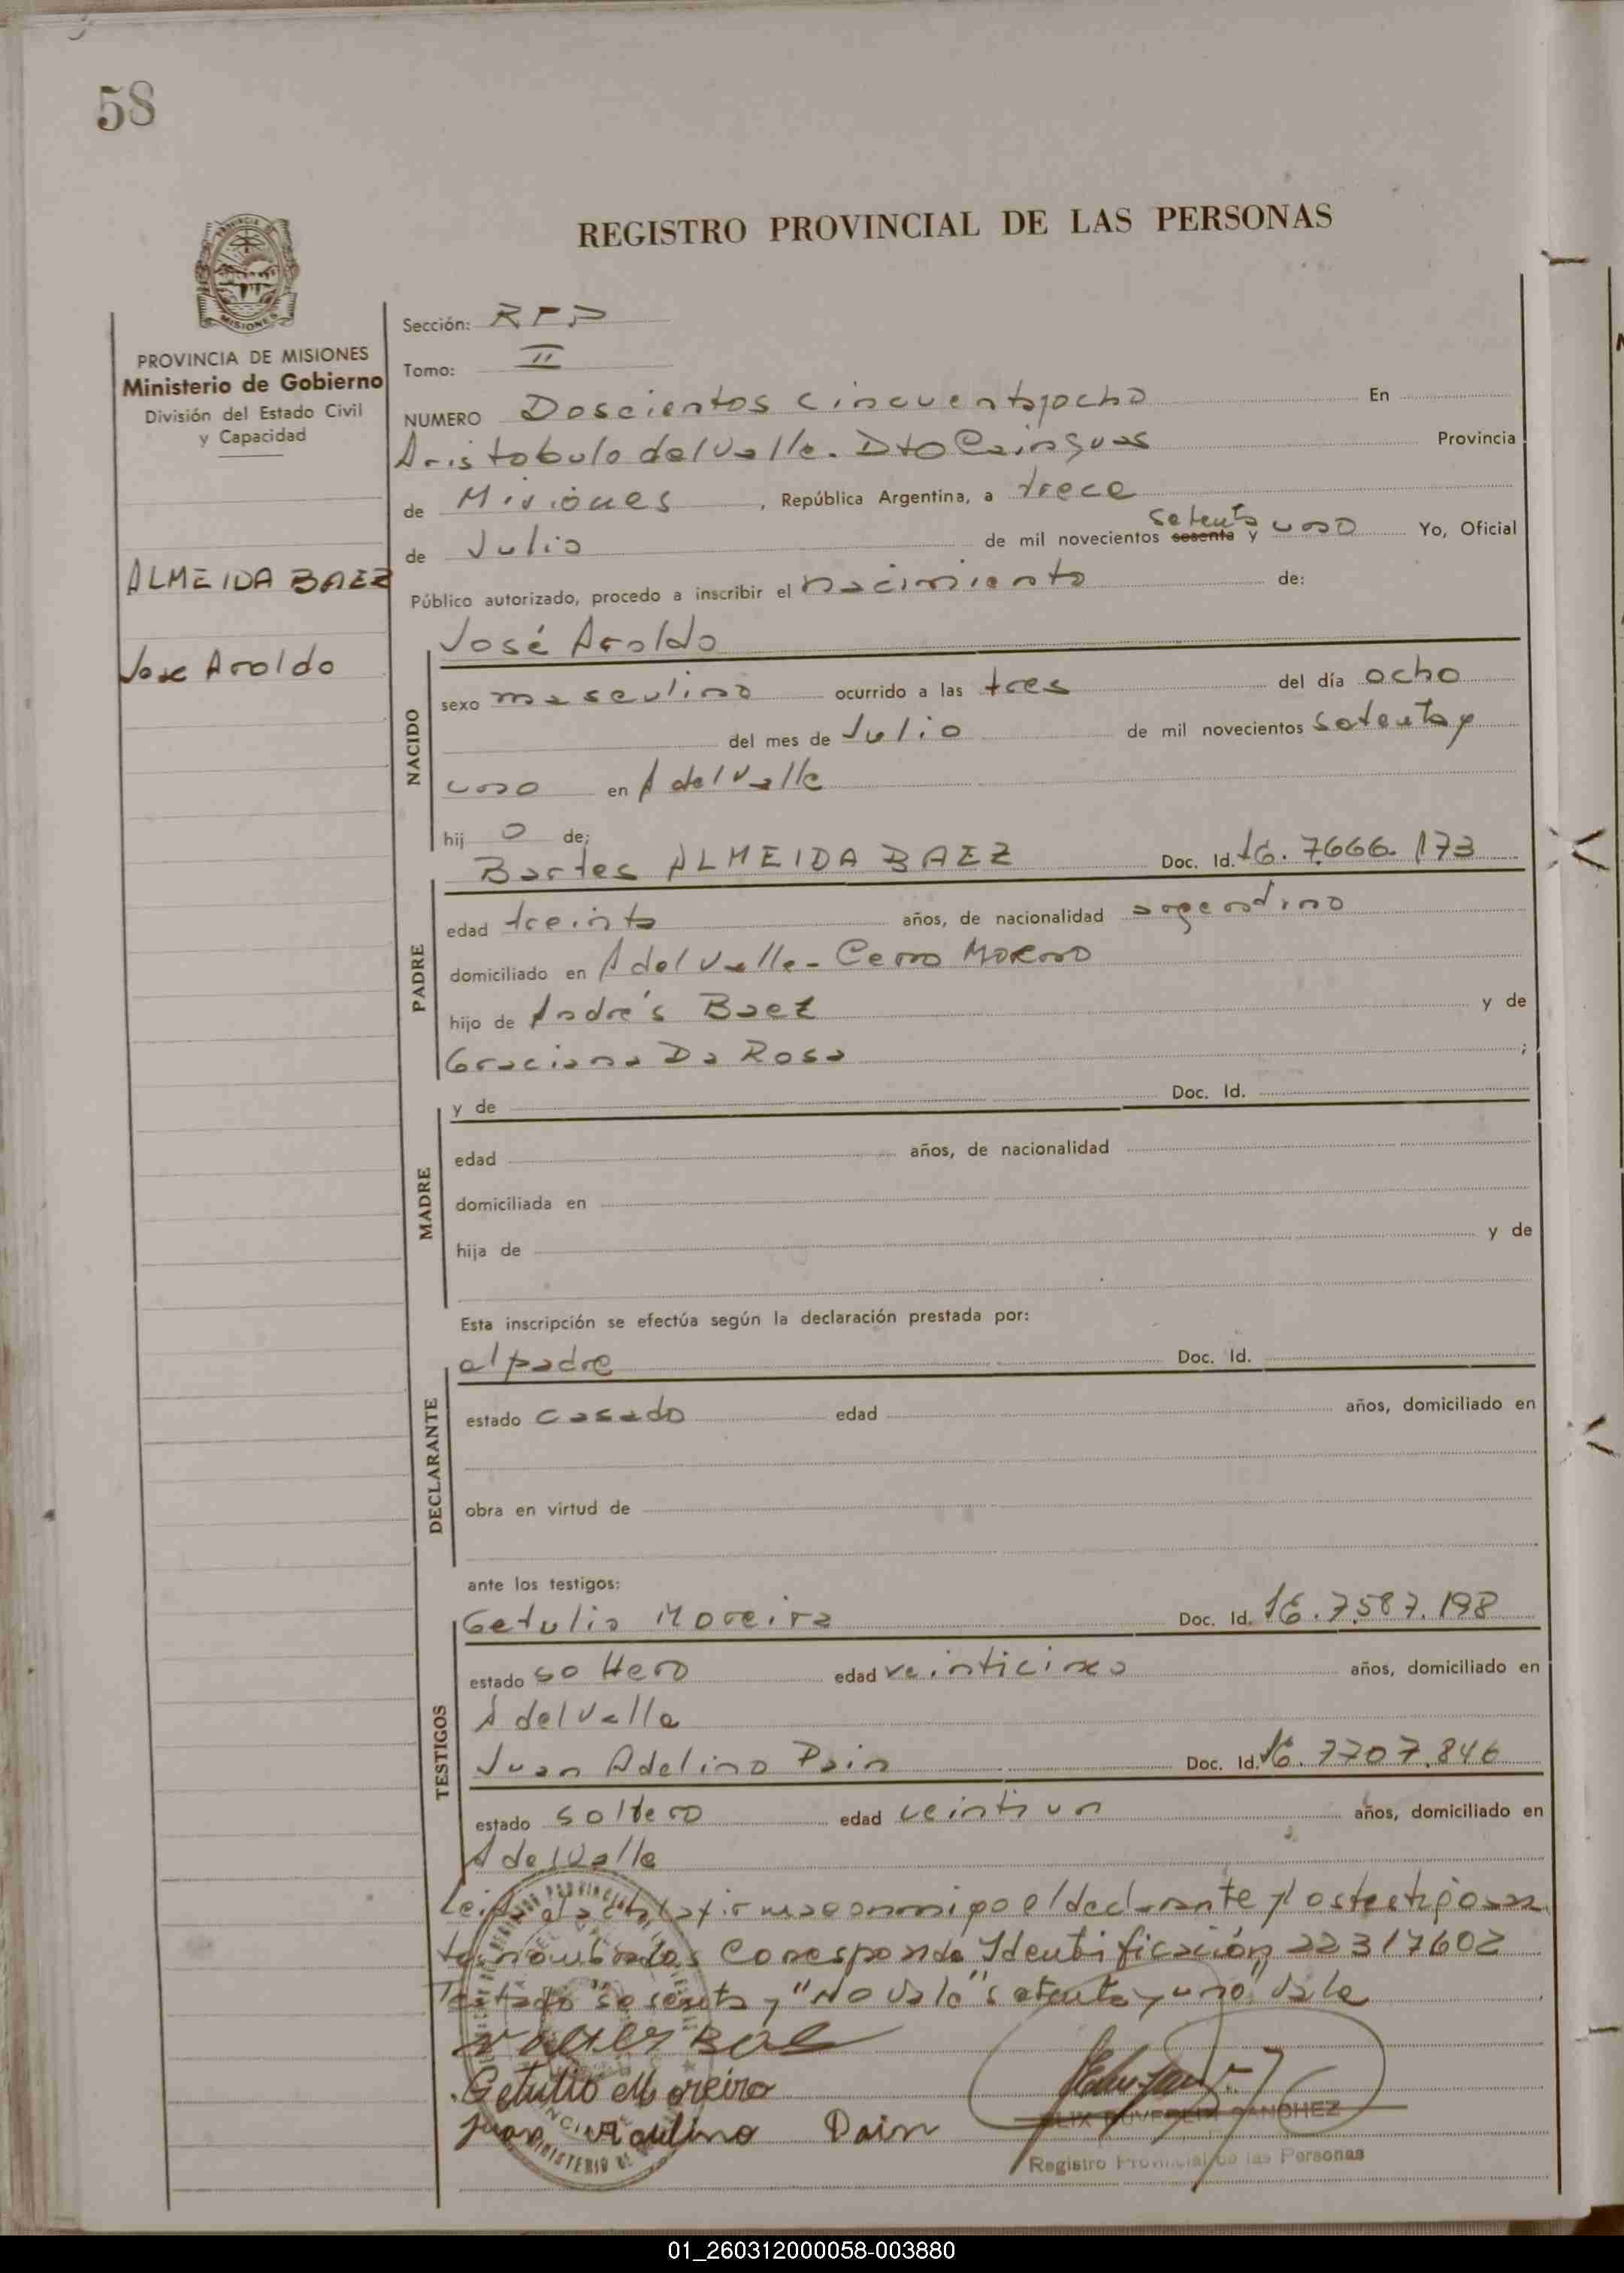 58
REGISTRO PROVINCIAL DE LAS PERSONAS
MISIONES
PROVINCIA DE MISIONES
Ministerio de Gobierno
División del Estado Civil
y Capacidad
ALMEIDA BAEZ
Jose Aroldo
Sección:
Tomo: II
NUMERO Doscientos cincuentayocho En
Aristobulo del Valle. Dto Cainguas Provincia
de Misiones, República Argentina, a trece
de Julio de mil novecientos sesenta setenta y uno Yo, Oficial
Público autorizado, procedo a inscribir el nacimiento de:
José Aroldo
NACIDO
sexo masculino ocurrido a las tres del día ocho
del mes de Julio de mil novecientos setenta y
uno en A del Valle
hij o de;
Bortes ALMEIDA BAEZ Doc. Id. 16. 7.666. 173
PADRE
edad treinta años, de nacionalidad argentino
domiciliado en A del Valle - Cerro Moreno
hijo de Andrés Baez y de
Graciana Da Rosa ;
MADRE
y de Doc. Id.
edad años, de nacionalidad
domiciliada en
hija de y de
Esta inscripción se efectúa según la declaración prestada por:
DECLARANTE
el padre Doc. Id.
estado casado edad años, domiciliado en
obra en virtud de
ante los testigos:
TESTIGOS
Getulio Moreira Doc. Id. 16. 7.587. 198
estado soltero edad veinticinco años, domiciliado en
A del Valle
Juan Adelino Pain Doc. Id. 16. 7707.846
estado soltero edad veintiun años, domiciliado en
A del Valle
Leida el acta la firma conmigo el declarante y los testigos an
tes nombrados Corresponde Identificación 22317602
Testado "sesenta y "No vale" setenta y uno" Vale
Getulio Moreira
Juan Adelino Dain
SANCHEZ
Registro Provincial de las Personas
01_260312000058-003880